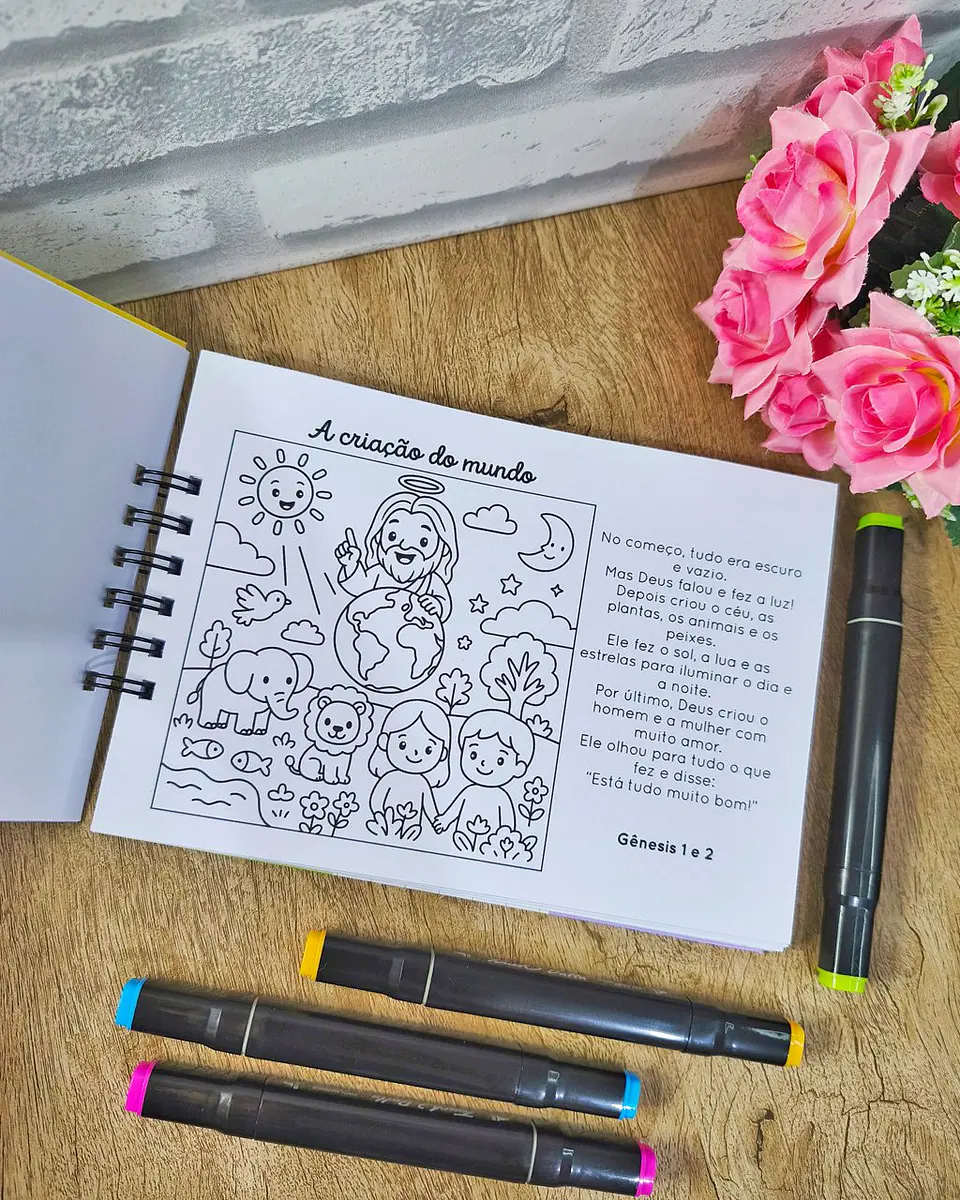 A criação do mundo
No começo, tudo era escuro
e vazio.
Mas Deus falou e fez a luz!
Depois criou o céu, as
plantas, os animais e os
peixes.
Ele fez o sol, a lua e as
estrelas para iluminar o dia e
a noite.
Por último, Deus criou o
homem e a mulher com
muito amor.
Ele olhou para tudo o que
fez e disse:
"Está tudo muito bom!"
Gênesis 1 e 2